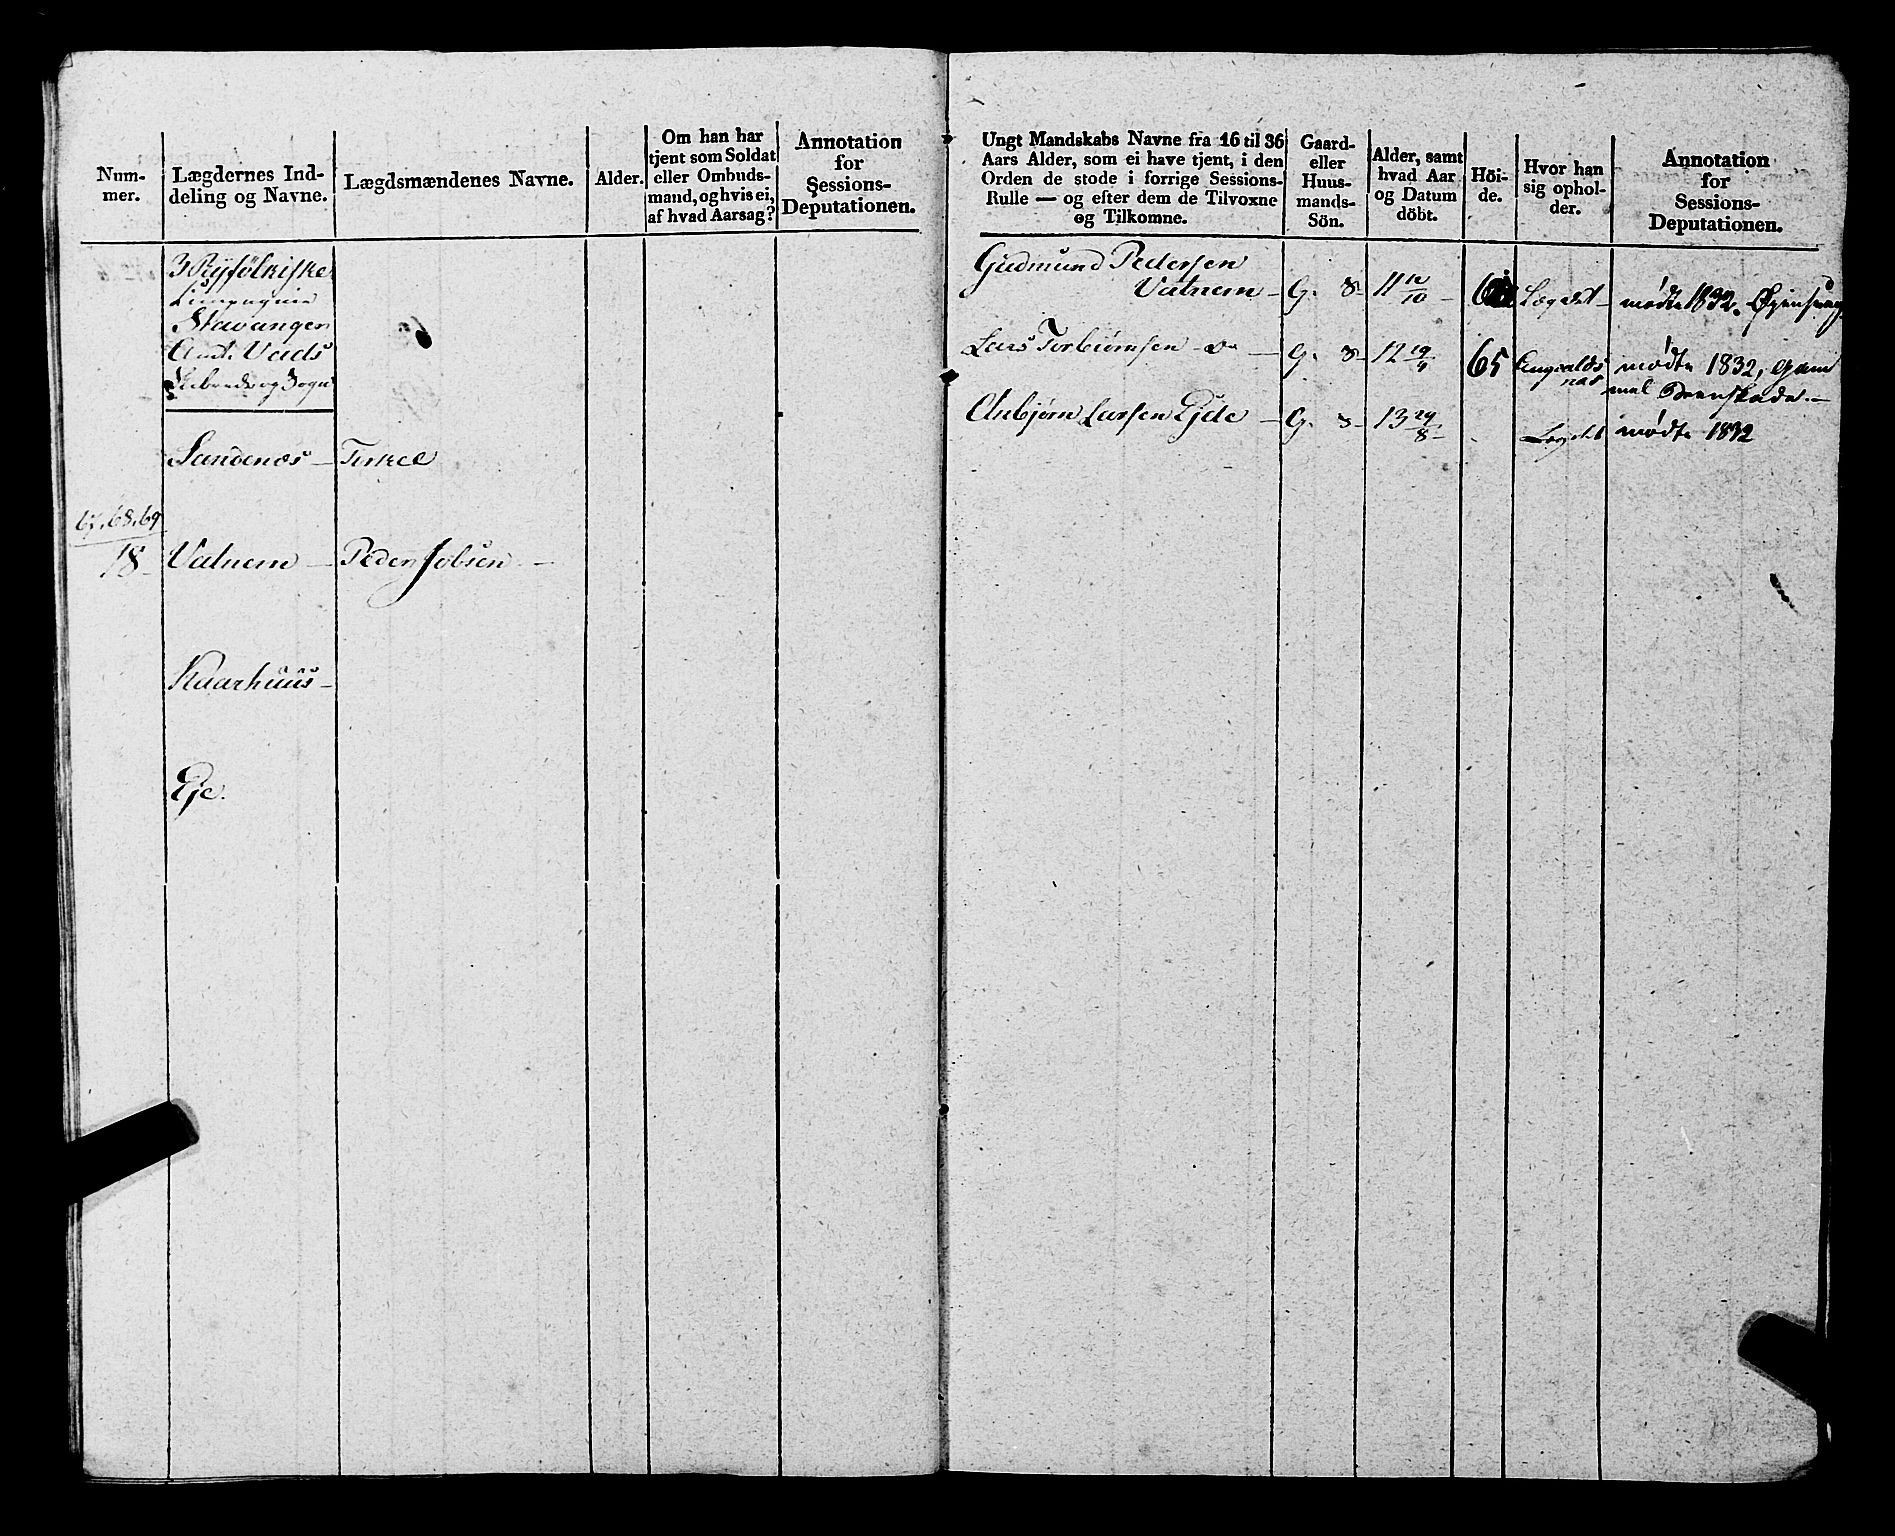 Num-
mer.
Lægdernes Ind-
deling og Navne.
Lægdsmændenes Navne.
Alder.
Om han har
tjent som Soldat
eller Ombuds-
mand, og hvis ei,
af hvad Aarsag?
Annotation
for
Sessions-
Deputationen.
3 Ryfølkiske
Compagnie
Stavanger
Amt. Vads
og Sogn
Sandenæs - Torkel
67, 68, 69
18 Vatnem - Peder Jobsen -
Kaarhuus -
Eje.
Ungt Mandskabs Navne fra 16 til 36
Aars Alder, som ei have tjent, i den
Orden de stode i forrige Sessions-
Rulle — og efter dem de Tilvoxne
og Tilkomne.
Gaard-
eller
Huus-
mands-
Sön.
Alder, samt
hvad Aar
og Datum
döbt.
Höi-
de.
Hvor han
sig ophol-
der.
Annotation
for
Sessions-
Deputationen.
Gudmund Pedersen
Vatnem - G. 8- 11 12/10 - Lægdet - mødte 1832.
Lars Torbiørnsen - G. 8- 12 19/4 65 mødte 1832, gam
mel Beenskade. -
Aubjørn Larsen Ejde - G. 8- 13 29/8 - Lægdet mødte 1832